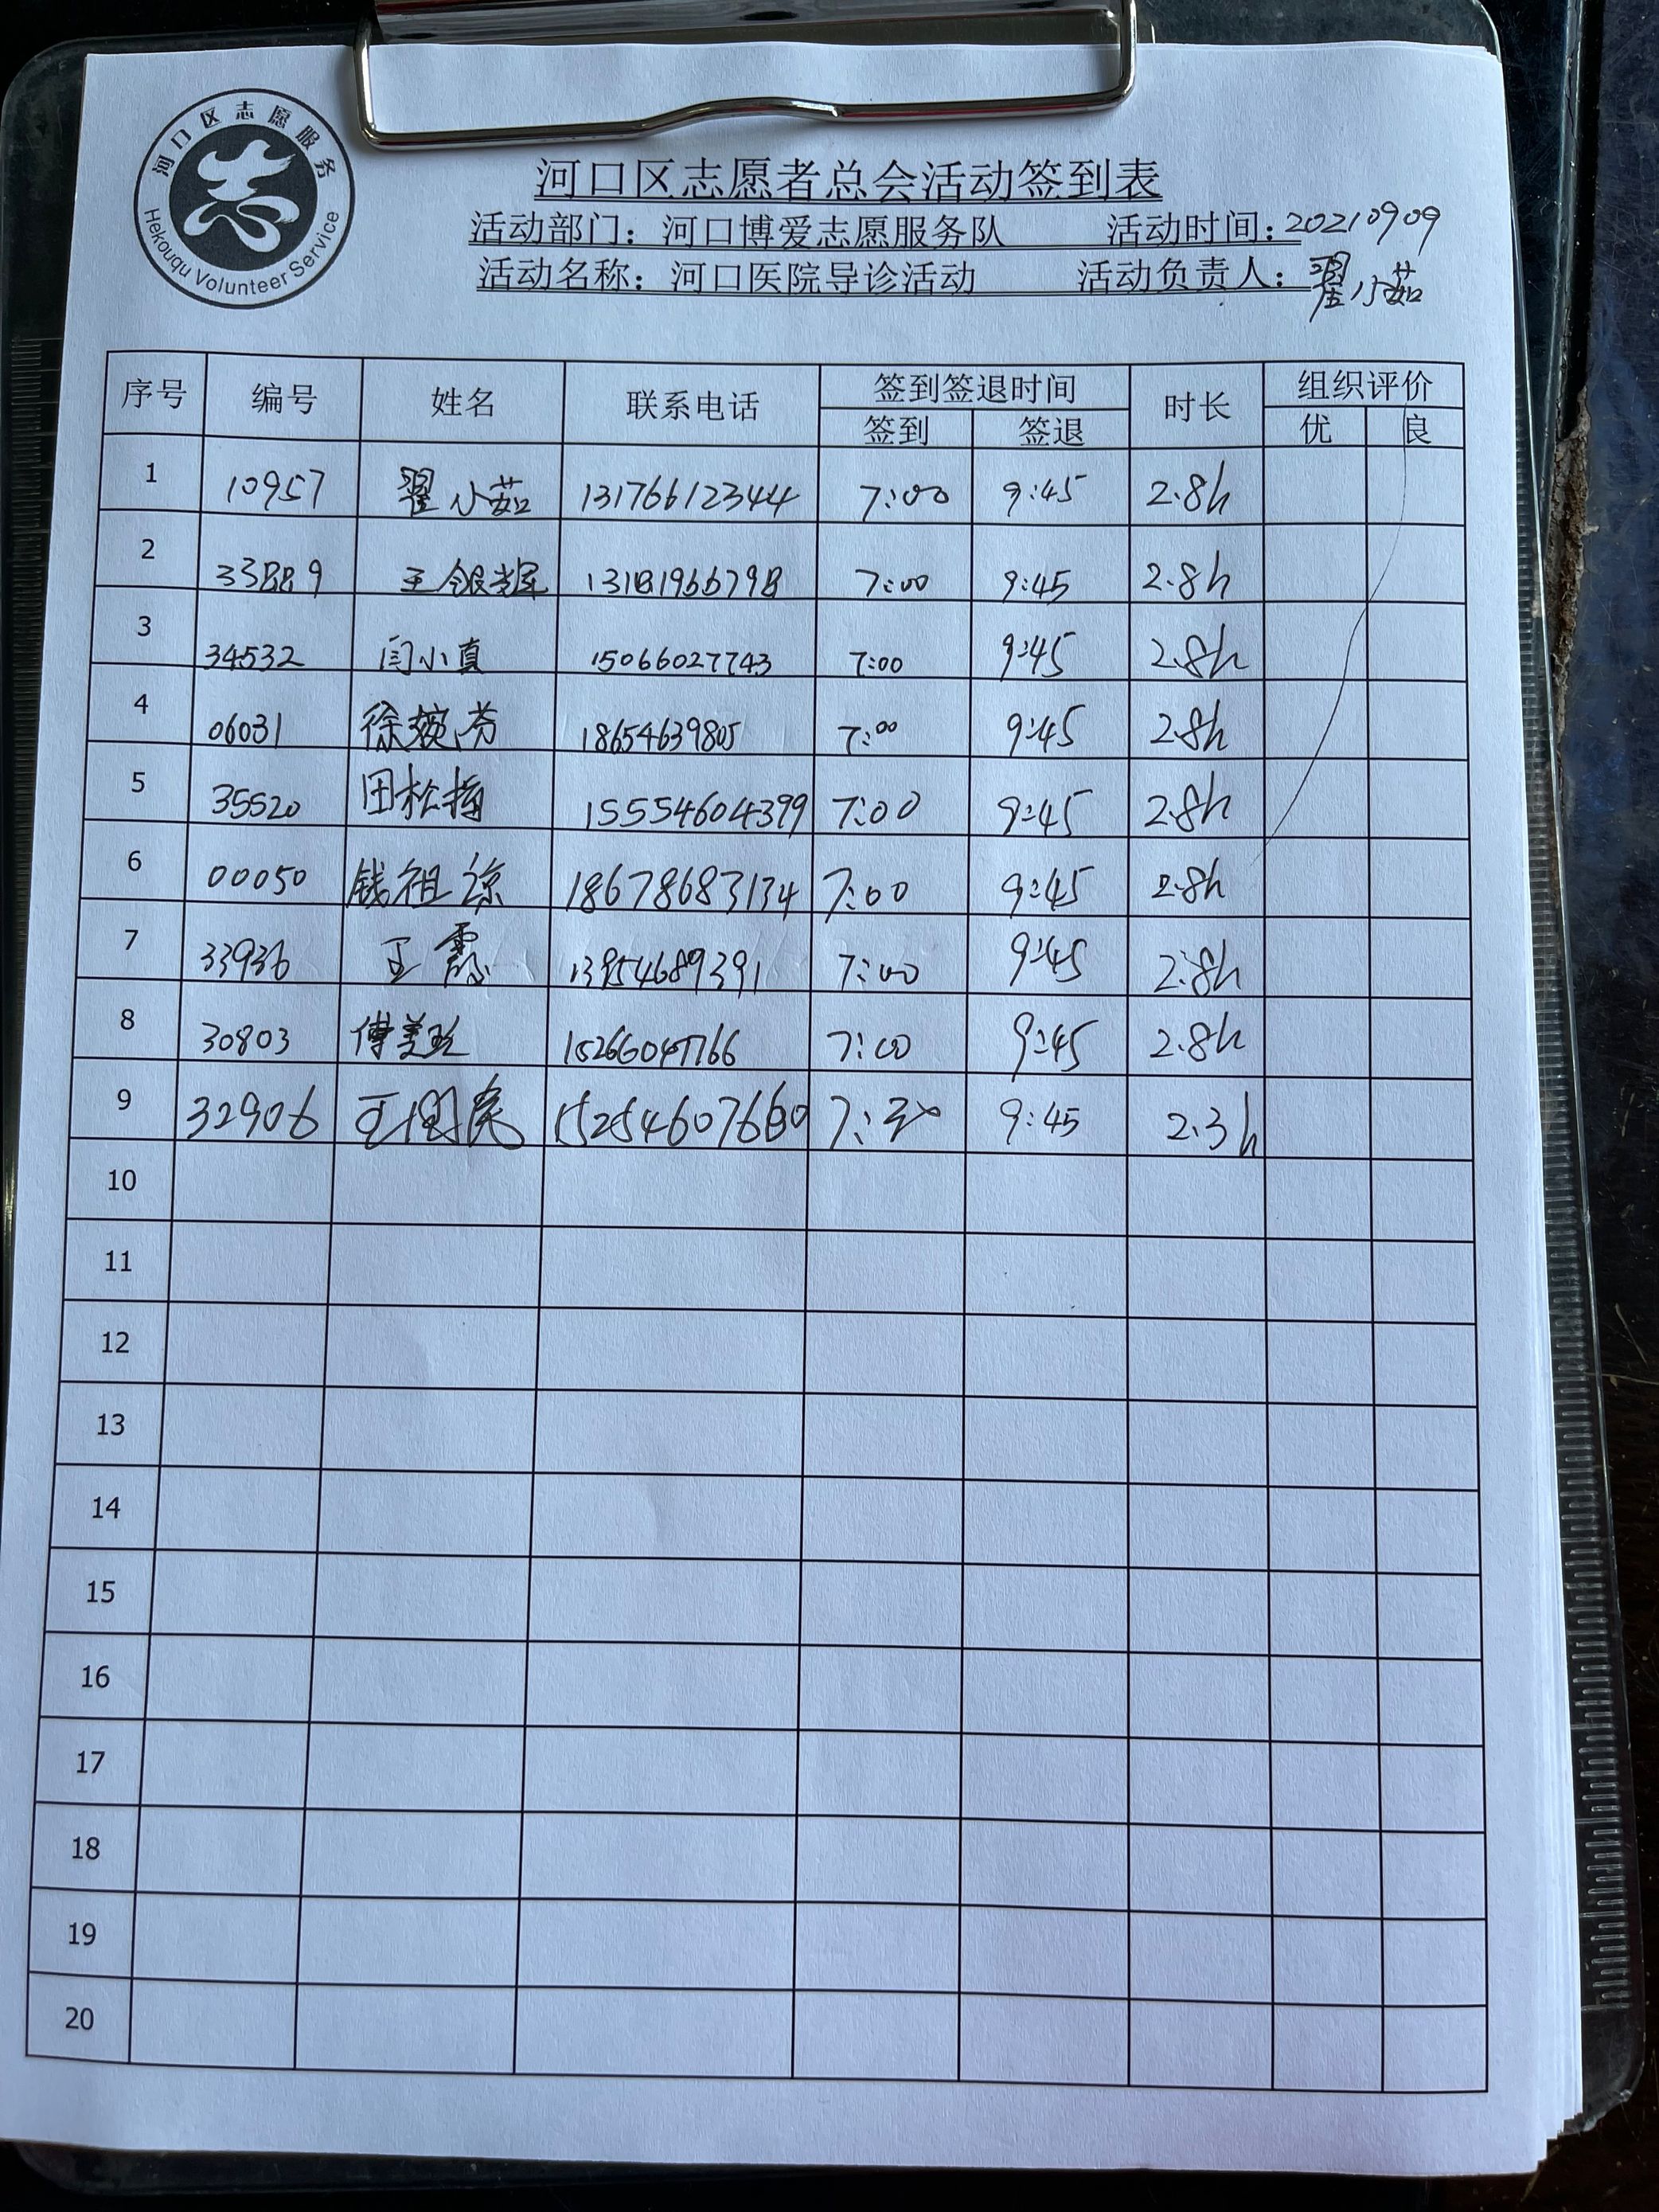 河口区志愿服务
Hekouqu Volunteer Service
河口区志愿者总会活动签到表
活动部门：河口博爱志愿服务队 活动时间：20210909
活动名称：河口医院导诊活动 活动负责人：翟小茹
序号 编号 姓名 联系电话 签到签退时间 时长 组织评价
签到 签退 优 良
1 10957 翟小茹 13176612344 7:00 9:45 2.8h
2 33889 王银辉 13181966798 7:00 9:45 2.8h
3 34532 闫小真 15066027743 7:00 9:45 2.8h
4 06031 18654639805 7:00 9:45 2.8h
5 35520 田松梅 15554604399 7:00 9:45 2.8h
6 00050 钱祖凉 18678683134 7:00 9:45 2.8h
7 33936 王霞 13954689391 7:00 9:45 2.8h
8 30803 傅美玲 15266047766 7:00 9:45 2.8h
9 32906 9:45 2.3h
10
11
12
13
14
15
16
17
18
19
20